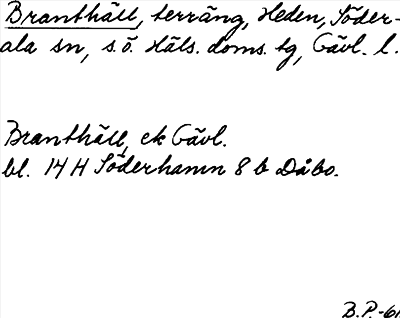 Branthäll, terräng, Heden, Söder-
ala sn, s.ö. Häls. doms. tg, Gävl. l.
Branthäll, ek Gävl.
bl. 14 H Söderhamn 8 b Dåbo.
B.P.-61